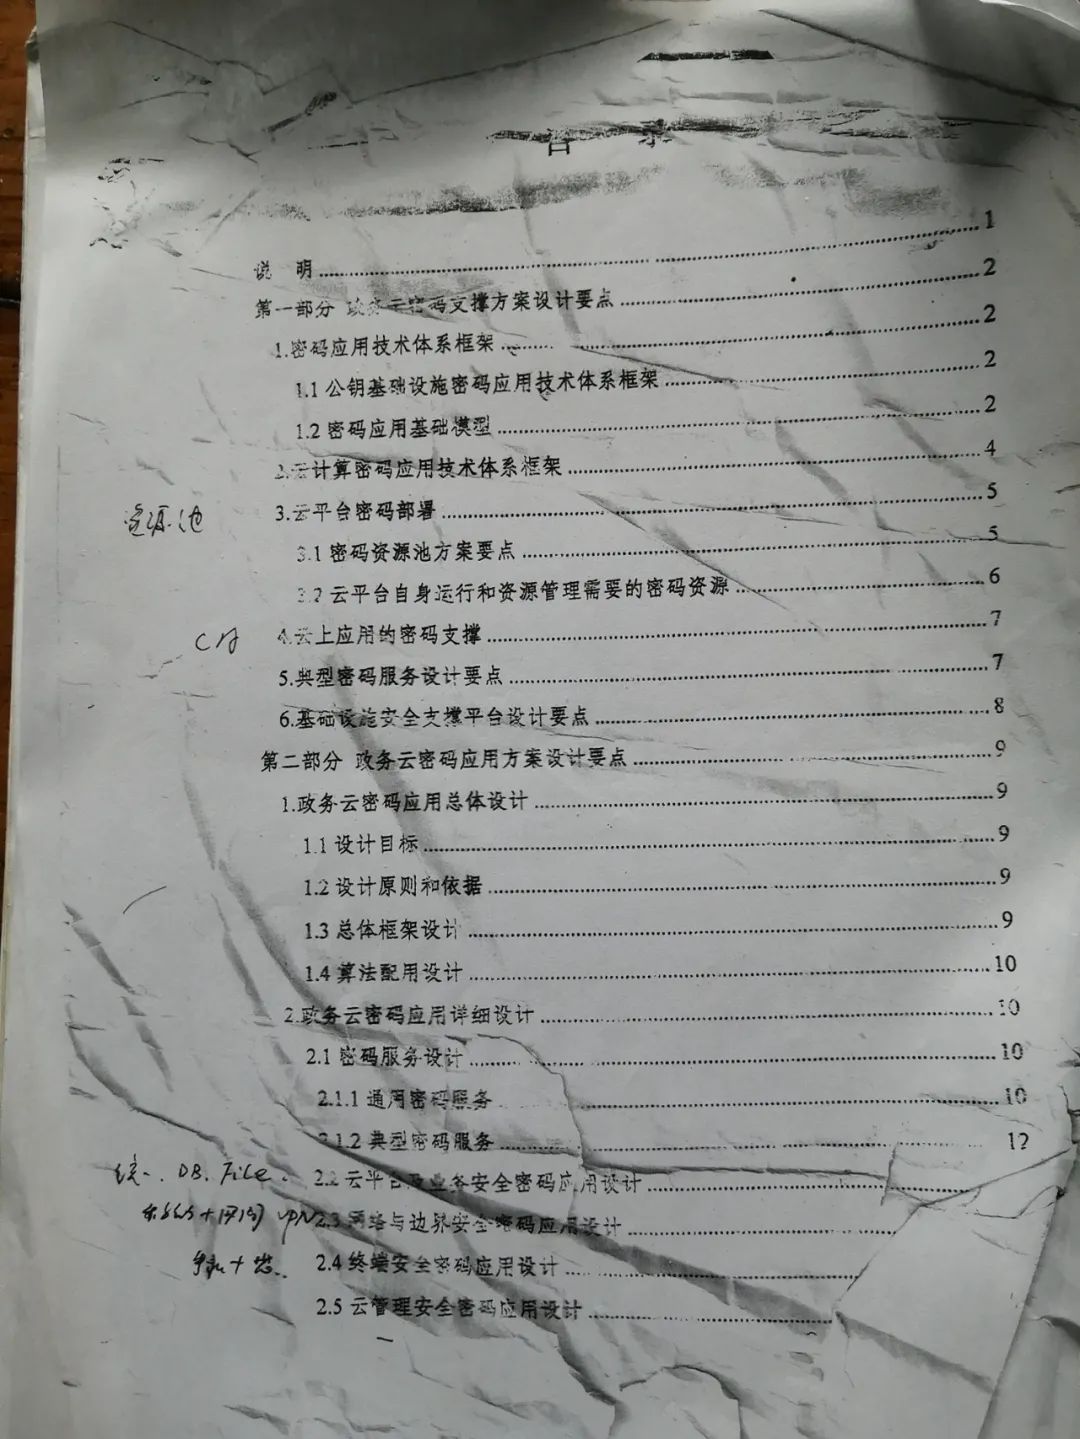 目 录
说 明 1
第一部分 政务云密码支撑方案设计要点 2
1.密码应用技术体系框架 2
1.1 公钥基础设施密码应用技术体系框架 2
1.2 密码应用基础模型 2
2.云计算密码应用技术体系框架 4
3.云平台密码部署 5
资源池
3.1 密码资源池方案要点 5
3.2 云平台自身运行和资源管理需要的密码资源 6
CA 4.云上应用的密码支撑 7
5.典型密码服务设计要点 7
6.基础设施安全支撑平台设计要点 8
第二部分 政务云密码应用方案设计要点 9
1.政务云密码应用总体设计 9
1.1 设计目标 9
1.2 设计原则和依据 9
1.3 总体框架设计 9
1.4 算法配用设计 10
2.政务云密码应用详细设计 10
2.1 密码服务设计 10
2.1.1 通用密码服务 10
2.1.2 典型密码服务 12
DB. File. 2.2 云平台及业务安全密码应用设计
VPN 2.3 网络与边界安全密码应用设计
2.4 终端安全密码应用设计
2.5 云管理安全密码应用设计
一